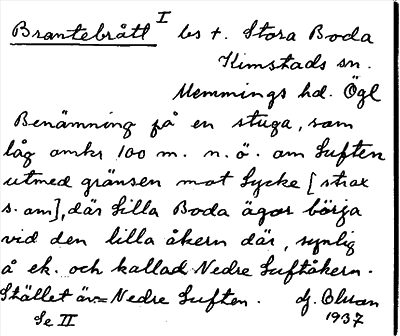 Brantebrått I bs t. Stora Boda
Kimstads sn.
Memmings hd. Ögl
Benämning på en stuga, som
låg omkr 100 m. n.ö. om Luften
utmed gränsen mot Lycke [strax
s. om], där Lilla Boda ägor börja
vid den lilla åkern där, synlig
å ek. och kallad Nedre Luftåkern.
Stället är = Nedre Luften. 
Se II 1937